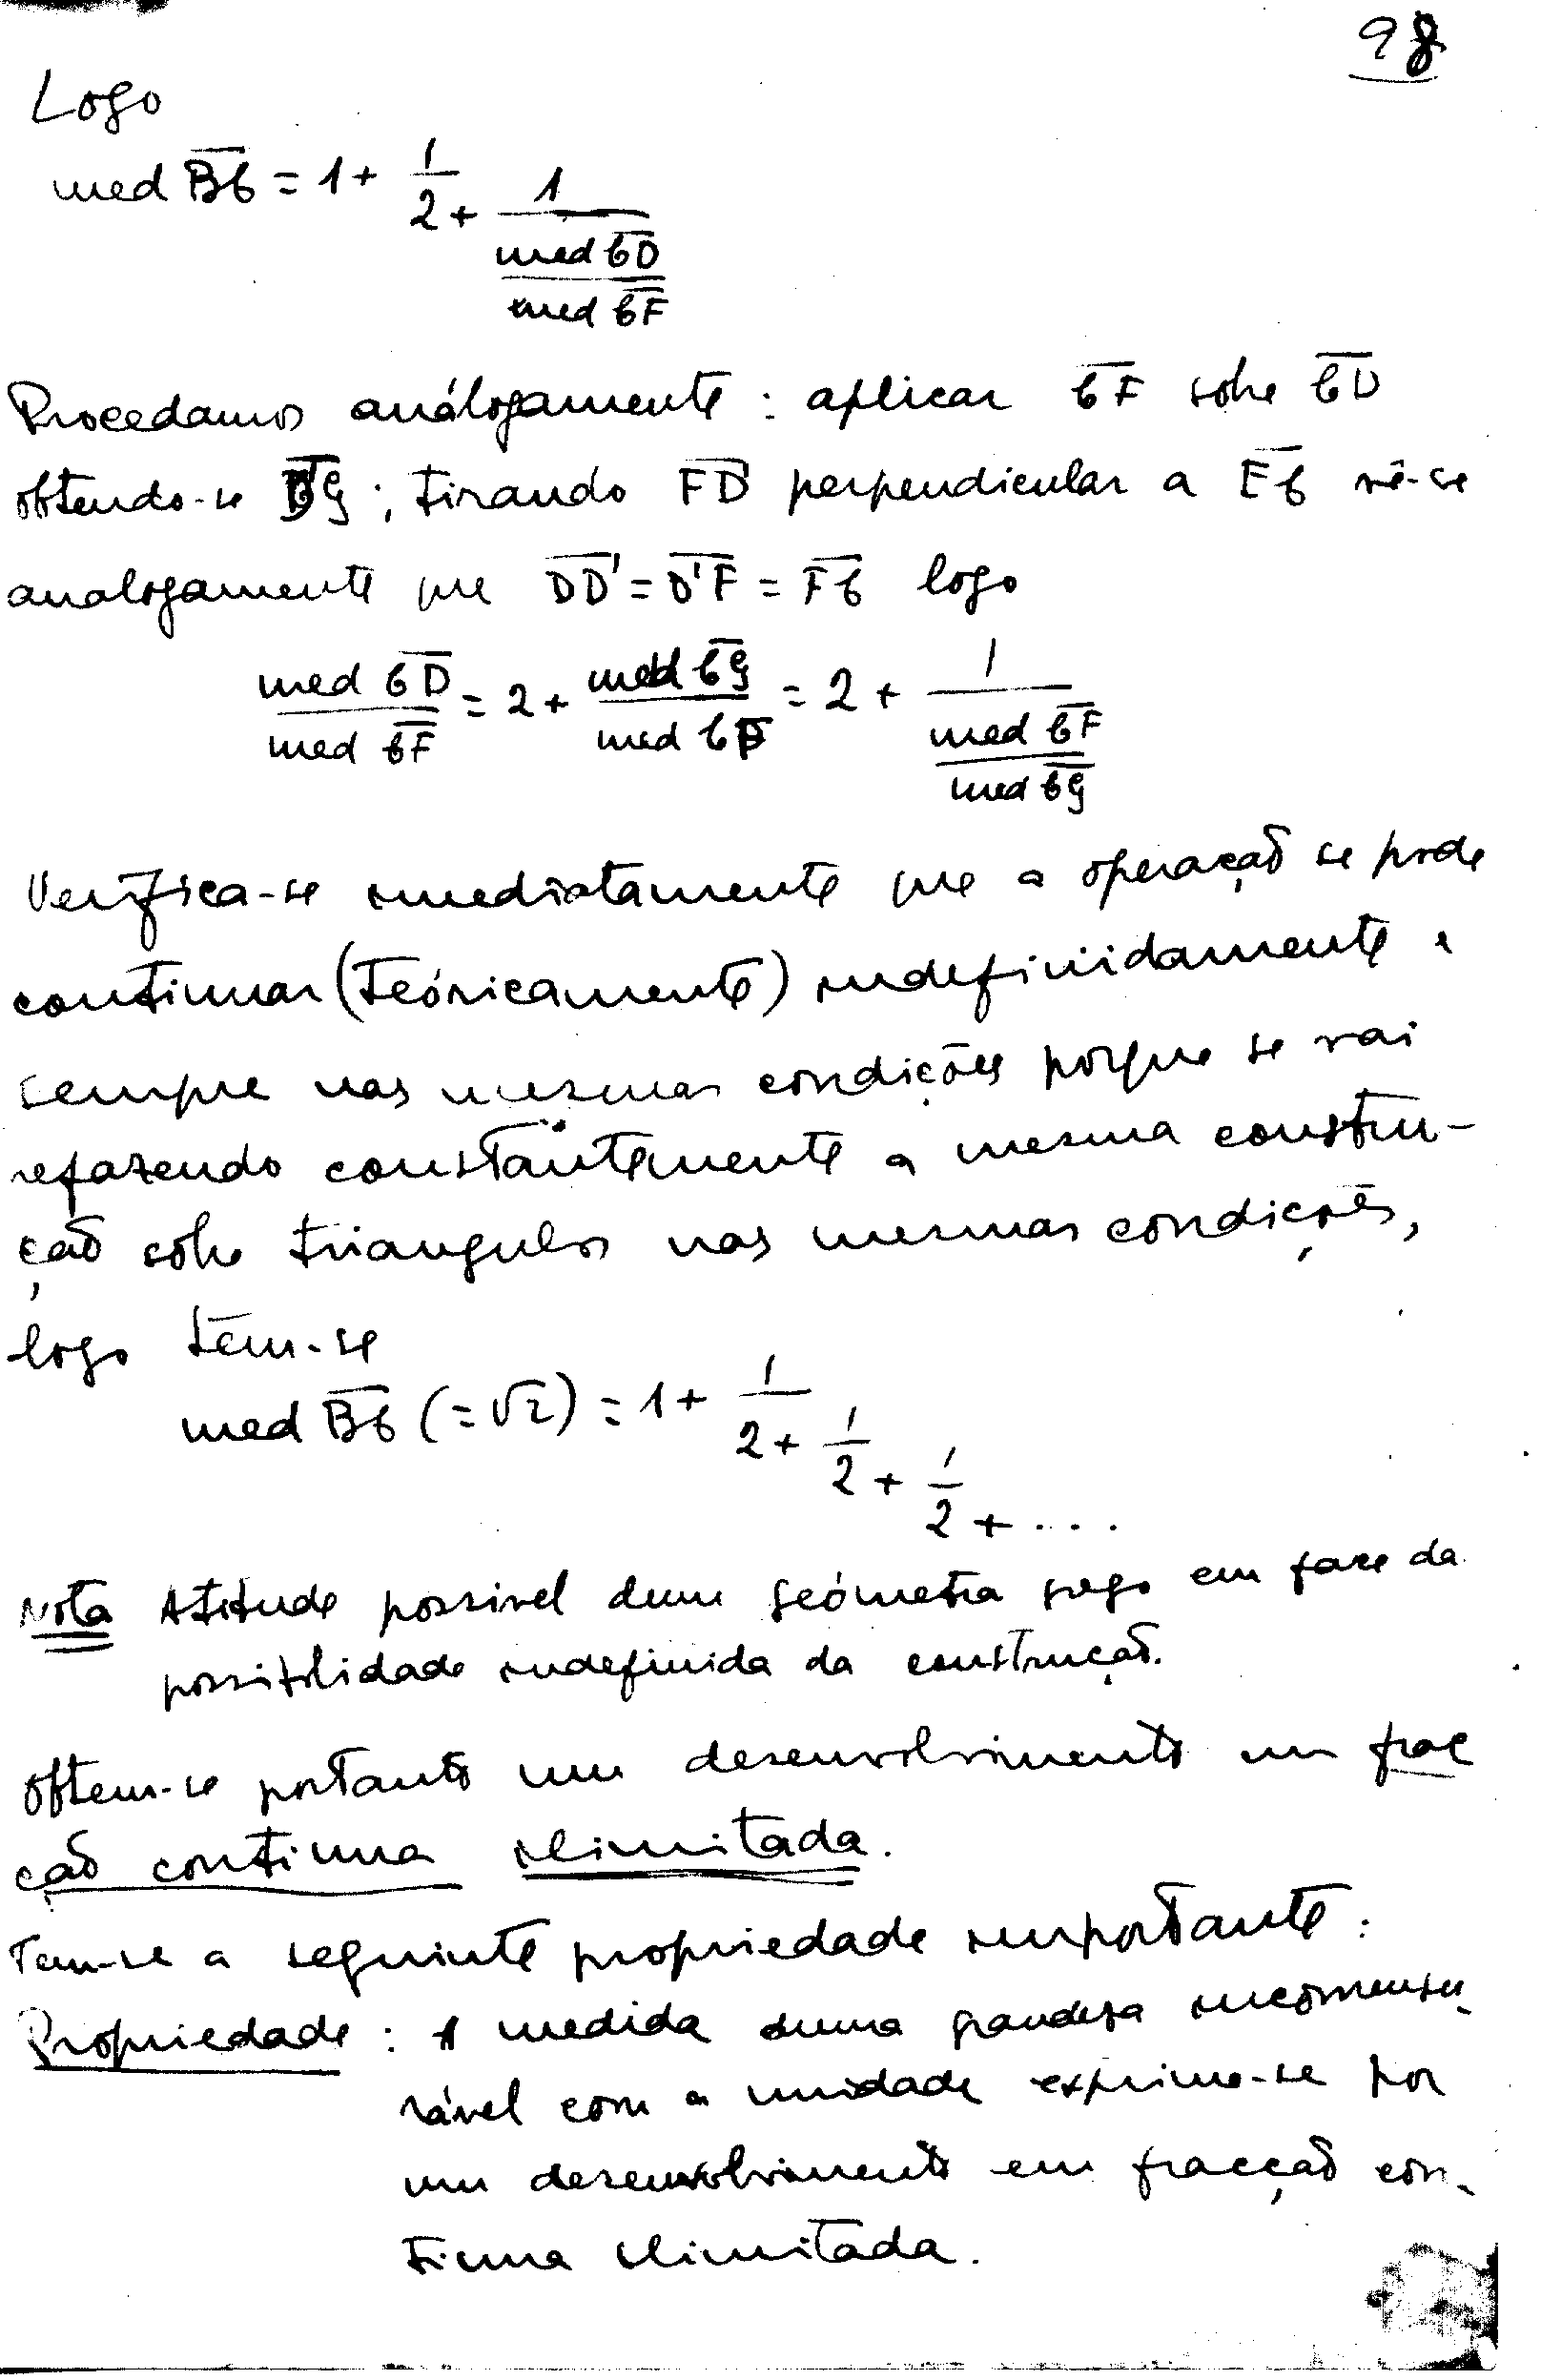 98
Logo
med B̅C̅ = 1 + 1/(2 + 1/(med C̅D̅ / med C̅F̅))
Procedamos análogamente : aplicar C̅F̅ sobre C̅D̅
obtendo-se C̅G̅ ; tirando F̅D̅' perpendicular a E̅C̅ vê-se
analogamente que D̅D̅' = D̅'F̅ = F̅C̅ logo
med C̅D̅ / med C̅F̅ = 2 + med C̅G̅ / med C̅F̅ = 2 + 1/(med C̅F̅ / med C̅G̅)
Verifica-se imediatamente que a operação se pode
continuar (teóricamente) indefinidamente e
sempre nas mesmas condições porque se vai
refazendo constantemente a mesma constru-
ção sôbre triangulos nas mesmas condições,
logo tem-se
med B̅C̅ (=√2) = 1 + 1/(2 + 1/(2 + 1/(2 + ...
Nota Atitude possivel dum geómetra grego em face da
possibilidade indefinida da construção.
Obtem-se portanto um desenvolvimento em frac
ção continua ilimitada.
Tem-se a seguinte propriedade importante :
Propriedade : A medida duma grandeza incomensu-
rável com a unidade exprime-se por
um desenvolvimento em fracção con-
tinua ilimitada.